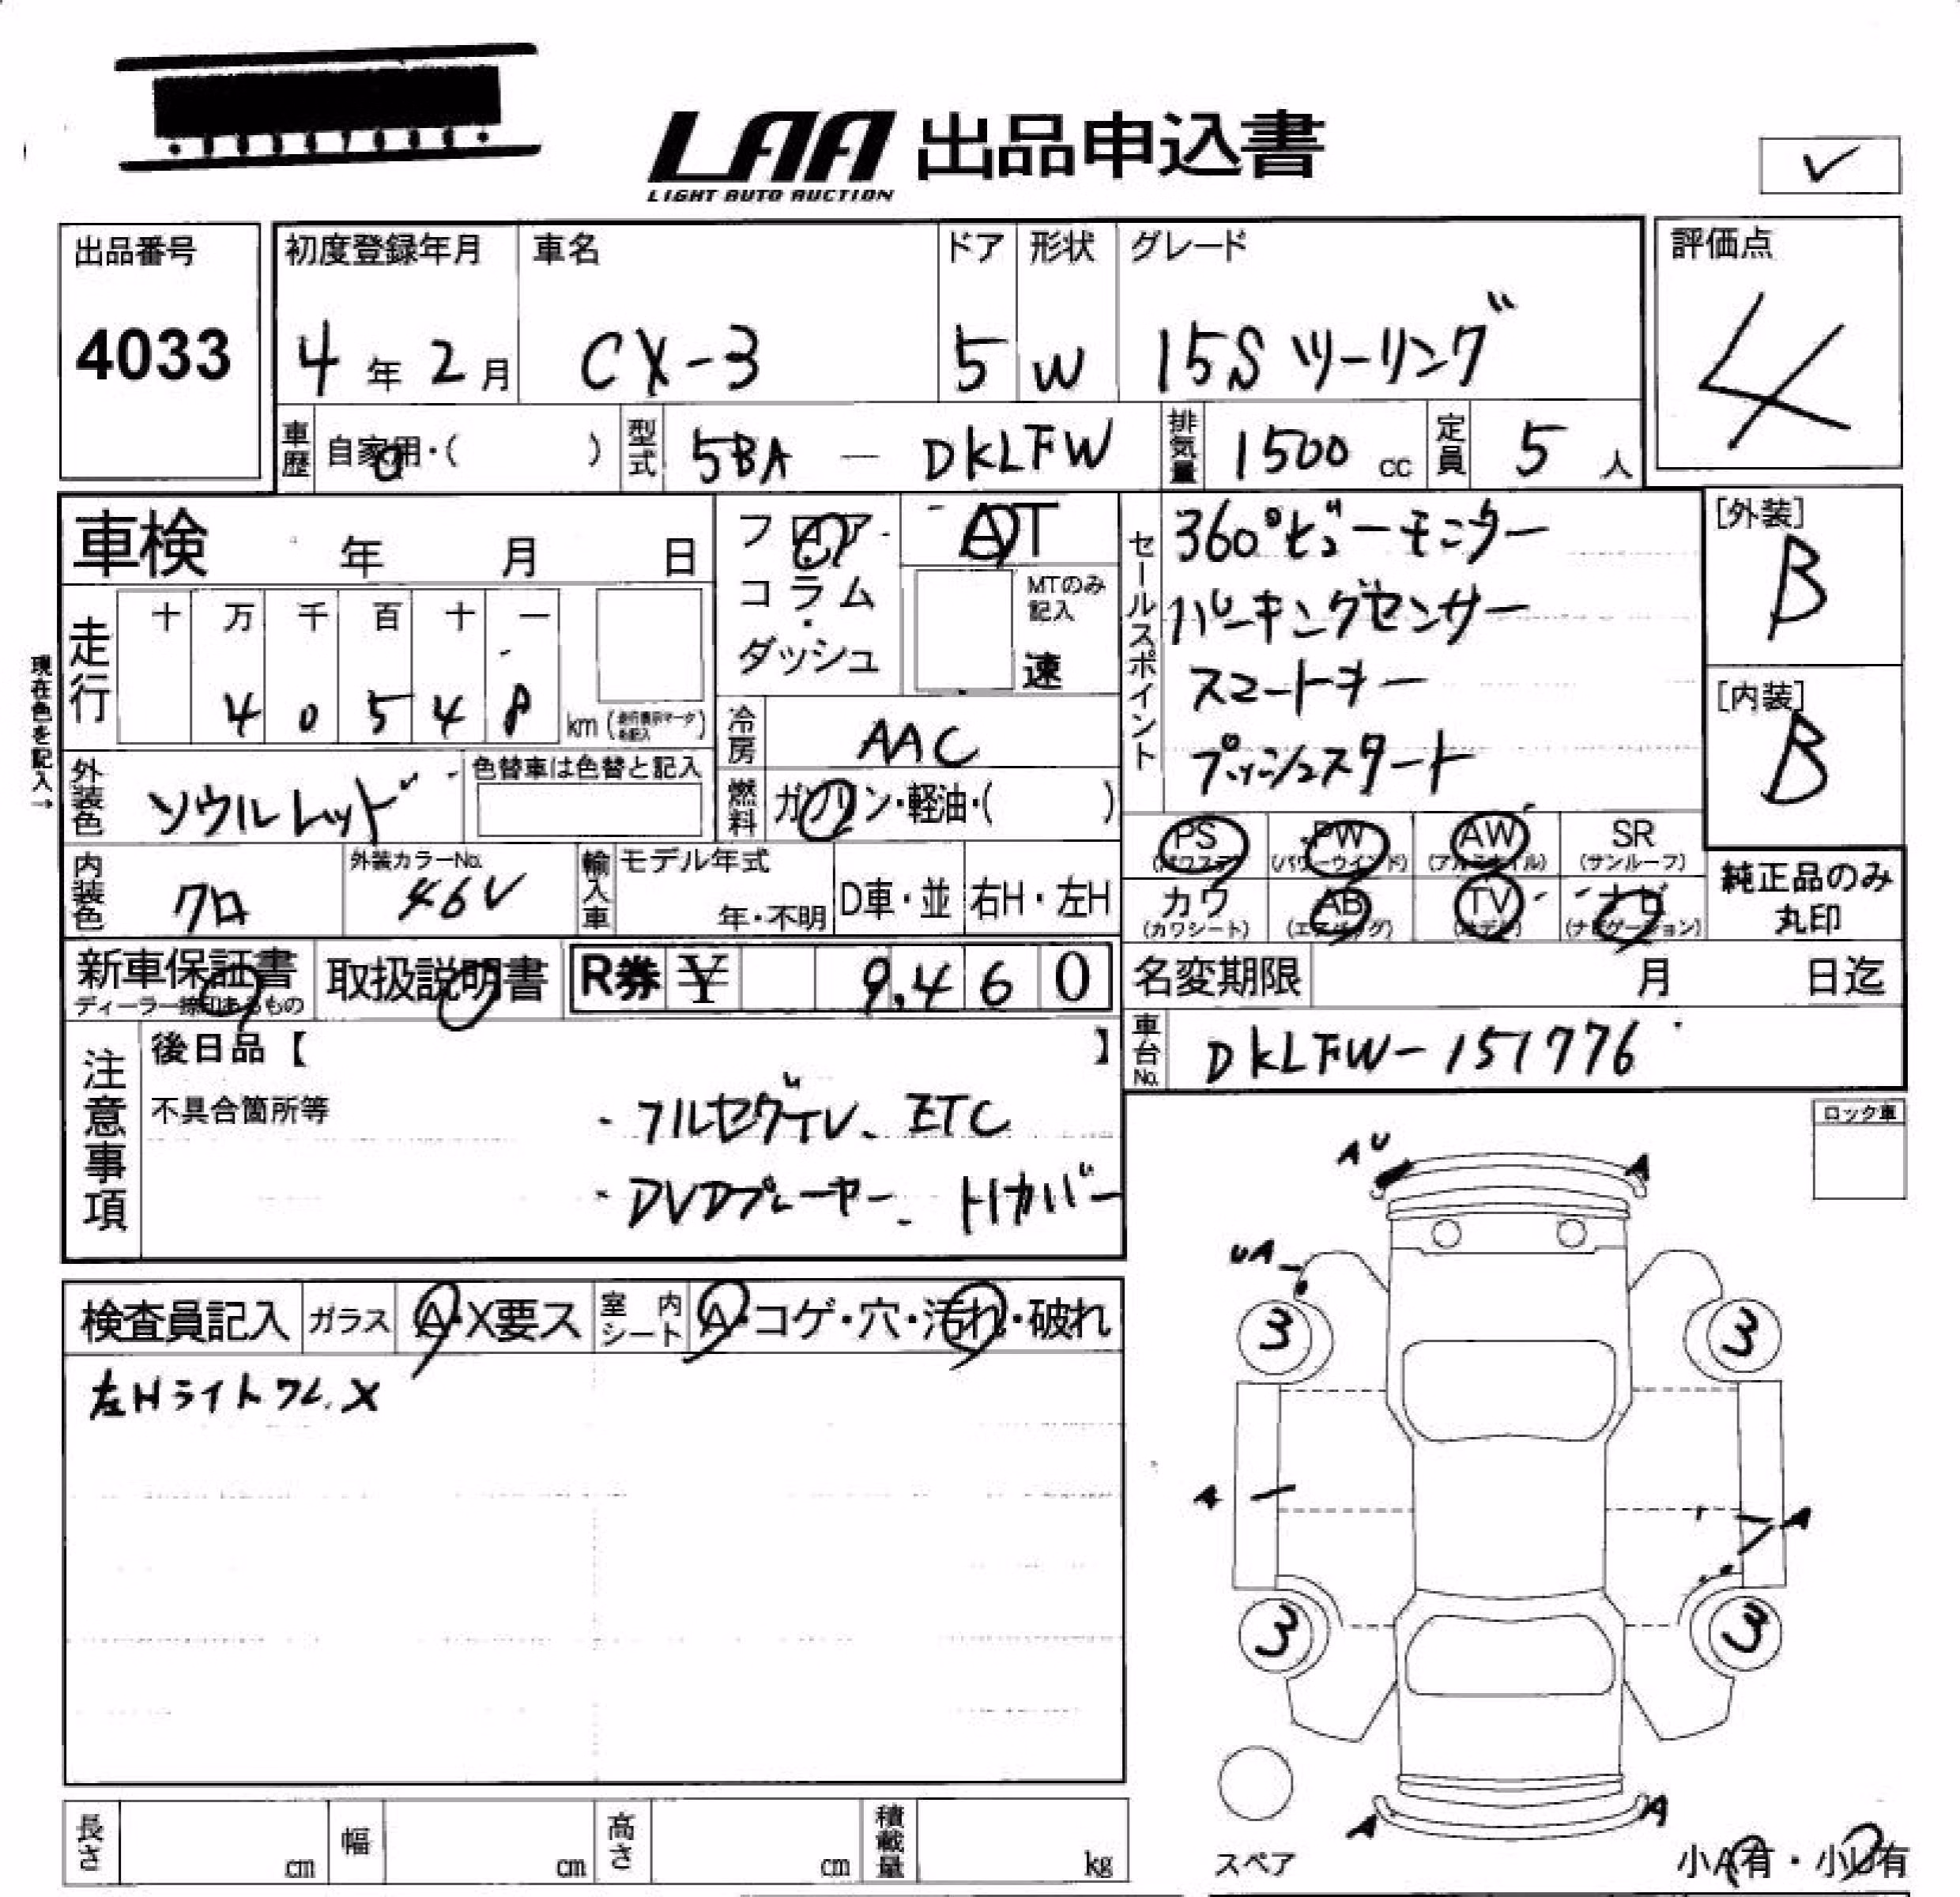 LAA 出品申込書
LIGHT AUTO AUCTION
出品番号
4033
初度登録年月
4年2月
車名
CX-3
ドア
5
形状
W
グレード
15S ツーリング
評価点
4
車歴
自家用・( )
型式
5BA - DKLFW
排気量
1500 cc
定員
5 人
車検 年 月 日
フロア・コラム・ダッシュ
AT
MTのみ記入
速
現在色を記入→
走行
十 万 千 百 十 一
4 0 5 4 8
km
冷房
AAC
外装色
ソウルレッド
色替車は色替と記入
燃料
ガソリン・軽油・( )
内装色
クロ
外装カラーNo.
46V
輸入車
モデル年式
年・不明
D車・並
右H・左H
セールスポイント
360°ビューモニター
パーキングセンサー
スマートキー
プッシュスタート
[外装]
B
[内装]
B
PS (パワステ)
PW (パワーウインド)
AW (アルミホイル)
SR (サンルーフ)
カワ (カワシート)
AB (エアバッグ)
TV
ナビ (ナビゲーション)
純正品のみ
丸印
新車保証書
ディーラー捺印あるもの
取扱説明書
R券 ¥ 9,460
名変期限 月 日迄
車台No.
DKLFW-151776
注意事項
後日品【 】
不具合箇所等
・フルセグTV、ETC
・DVDプレーヤー、トノカバー
ロック車
検査員記入
ガラス
A・X要ス
室内シート
A・コゲ・穴・汚れ・破れ
左Hライト クレ、X
AU
A
UA
3
3
A
A
3
3
A
A
スペア
小A有・小U有
長さ cm
幅 cm
高さ cm
積載量 kg